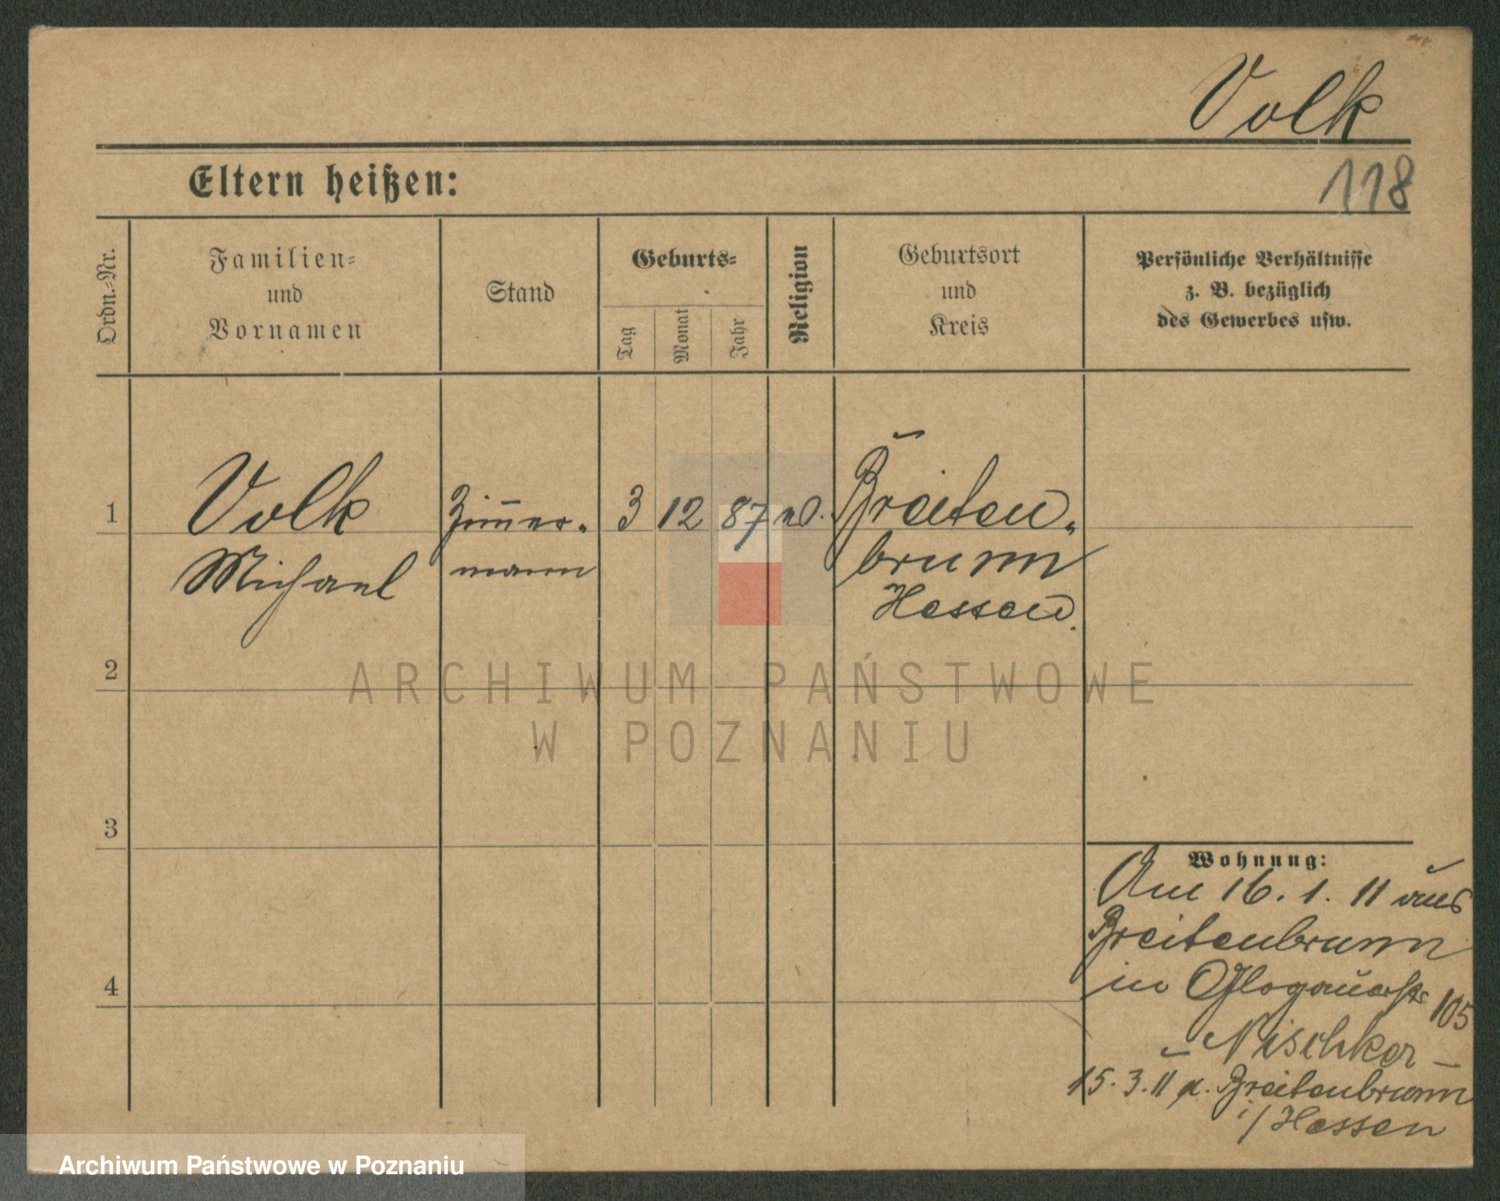 Volk
118
Eltern heißen:
Ordn.-Nr.
Familien-
und
Vornamen
Stand
Geburts-
Tag
Monat
Jahr
Religion
Geburtsort
und
Kreis
Persönliche Verhältnisse
z. B. bezüglich
des Gewerbes usw.
1
Volk
Michael
Zimmer-
mann
3
12
87
Breiten-
brunn
Hessen.
2
3
4
Wohnung:
Am 16. 1. 11 aus
Breitenbrunn
in Glogauerstr 105
Nischker
15. 3. 11 n. Breitenbrunn
i/Hessen
ARCHIWUM PAŃSTWOWE
W POZNANIU
Archiwum Państwowe w Poznaniu